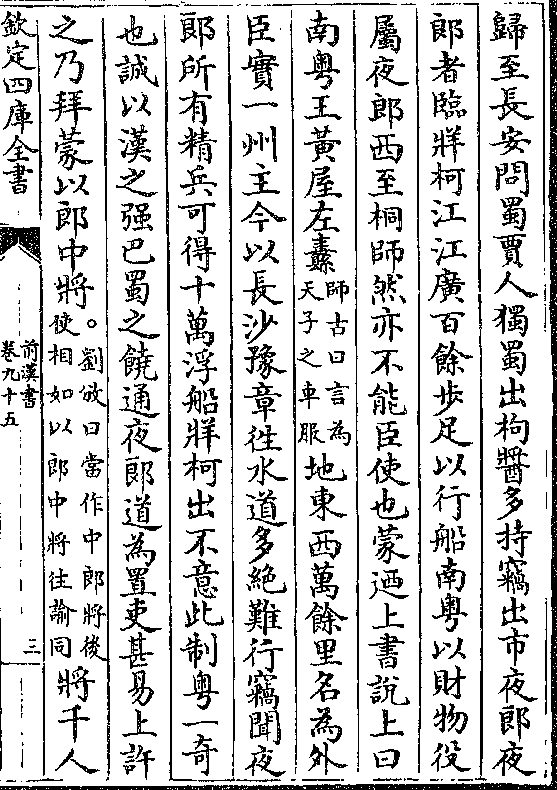 歸至長安問蜀賈人獨蜀出枸醬多持竊出市夜郎夜
郎者臨牂柯江江廣百餘歩足以行船南粤以財物役
屬夜郎西至桐師然亦不能臣使也蒙迺上書說上曰
南粤王黃屋左纛師古曰言為天子之車服地東西萬餘里名為外
臣實一州主今以長沙豫章徃水道多絶難行竊聞夜
郎所有精兵可得十萬浮船牂柯出不意此制粤一奇
也誠以漢之强巴蜀之饒通夜郎道為置吏甚易上許
之乃拜蒙以郎中將。劉攽曰當作中郎將後使相如以郎中將徃諭同將千人
欽定四庫全書
前漢書
卷九十五
三